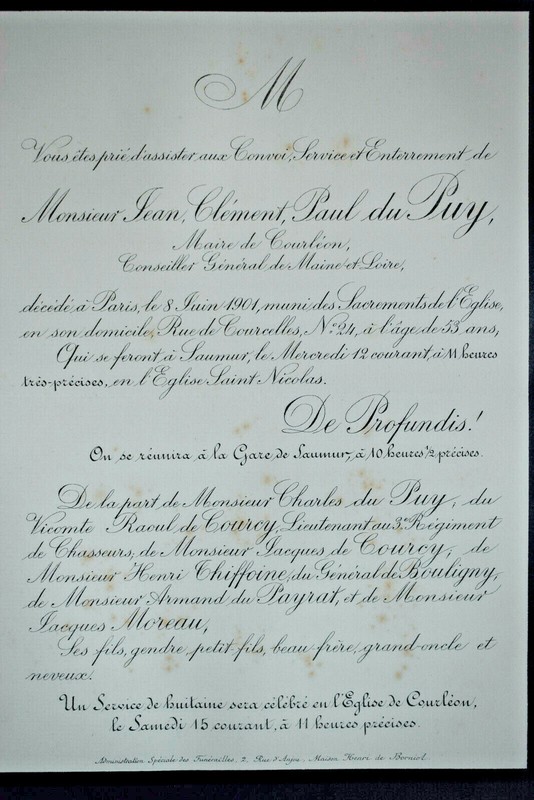 M
Vous êtes prié d'assister aux Convoi, Service et Enterrement de
Monsieur Jean, Clément, Paul du Puy,
Maire de Courléon,
Conseiller Général de Maine et Loire,
décédé à Paris, le 8 Juin 1901, muni des Sacrements de l'Eglise,
en son domicile, Rue de Courcelles, N.º 24, à l'âge de 53 ans,
Qui se feront à Saumur, le Mercredi 12 courant, à 11 heures
très-précises, en l'Eglise Saint Nicolas.
De Profundis!
On se réunira à la Gare de Saumur, à 10 heures ½ précises.
De la part de Monsieur Charles du Puy, du
Vicomte Raoul de Courcy, Lieutenant au 3.e Régiment
de Chasseurs, de Monsieur Jacques de Courcy, de
Monsieur Henri Chiffoine, du Général de Boutigny,
de Monsieur Armand du Payrat, et de Monsieur
Jacques Moreau,
Ses fils, gendre, petit-fils, beau frère, grand-oncle et
neveux.
Un Service de huitaine sera célébré en l'Eglise de Courléon,
le Samedi 15 courant, à 11 heures précises.
Administration Spéciale des Funérailles, 2, Rue d'Anjou, Maison Henri de Borniol.